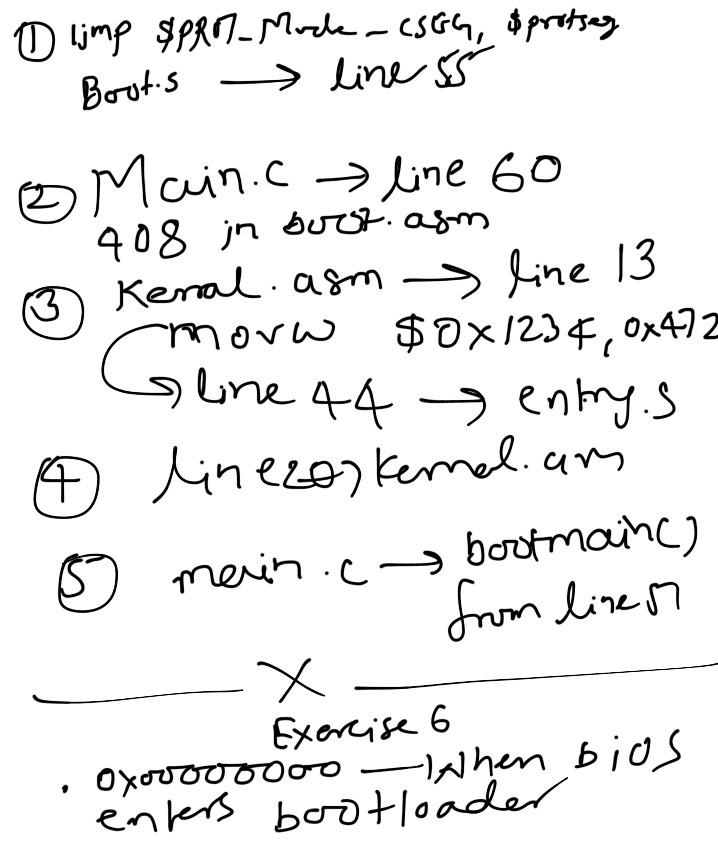 ① ljmp $PROT_Mode_CSEG, $protseg
Boot.s → line 55
② Main.c → line 60
408 in boot.asm
③ Kernal.asm → line 13
movw $0x1234, 0x472
line 44 → entry.s
④ line 207 Kernel.asm
⑤ main.c → bootmain()
from line 57
X
Exercise 6
. 0x00000000 — When bios
enters bootloader